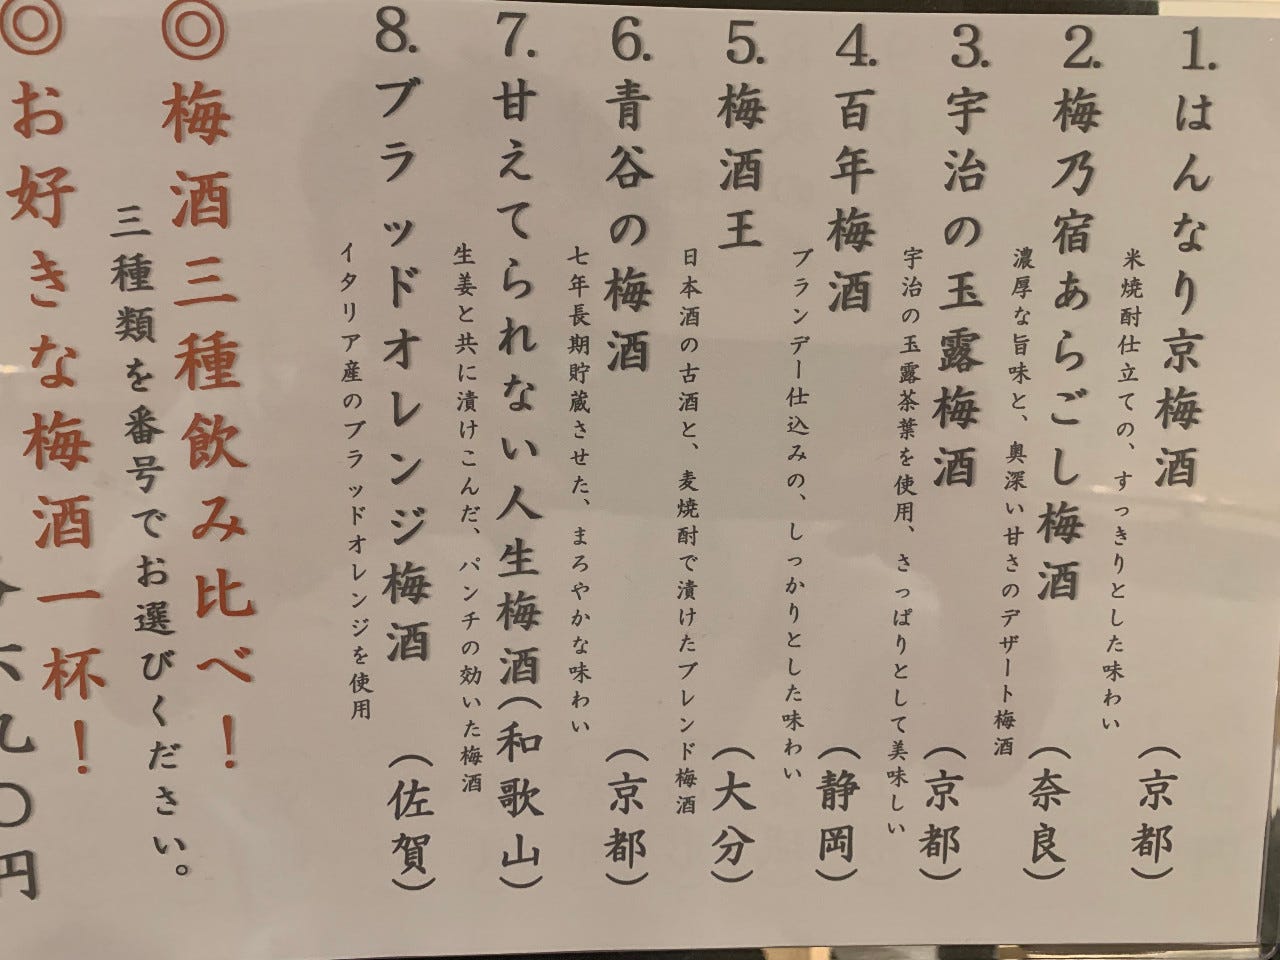 1.はんなり京梅酒（京都）
米焼酎仕立ての、すっきりとした味わい
2.梅乃宿あらごし梅酒（奈良）
濃厚な旨味と、奥深い甘さのデザート梅酒
3.宇治の玉露梅酒（京都）
宇治の玉露茶葉を使用、さっぱりとして美味しい
4.百年梅酒（静岡）
ブランデー仕込みの、しっかりとした味わい
5.梅酒王（大分）
日本酒の古酒と、麦焼酎で漬けたブレンド梅酒
6.青谷の梅酒（京都）
七年長期貯蔵させた、まろやかな味わい
7.甘えてられない人生梅酒（和歌山）
生姜と共に漬けこんだ、パンチの効いた梅酒
8.ブラッドオレンジ梅酒（佐賀）
イタリア産のブラッドオレンジを使用
◎梅酒三種飲み比べ！
三種類を番号でお選びください。
◎お好きな梅酒一杯！
六九〇円